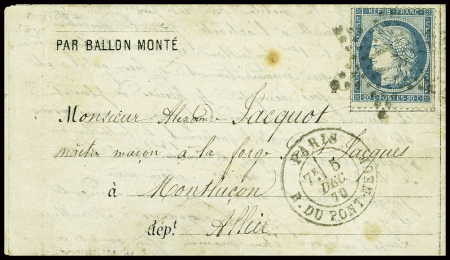 REPUB. FRANC.
20 C. POSTES 20 C.
PAR BALLON MONTÉ
Monsieur Alexandre Jacquot
maître maçon à la forge St Jacques
à Montluçon
dépt. Allier
PARIS
7E 5
DEC.
70
R. DU PONT-NEUF